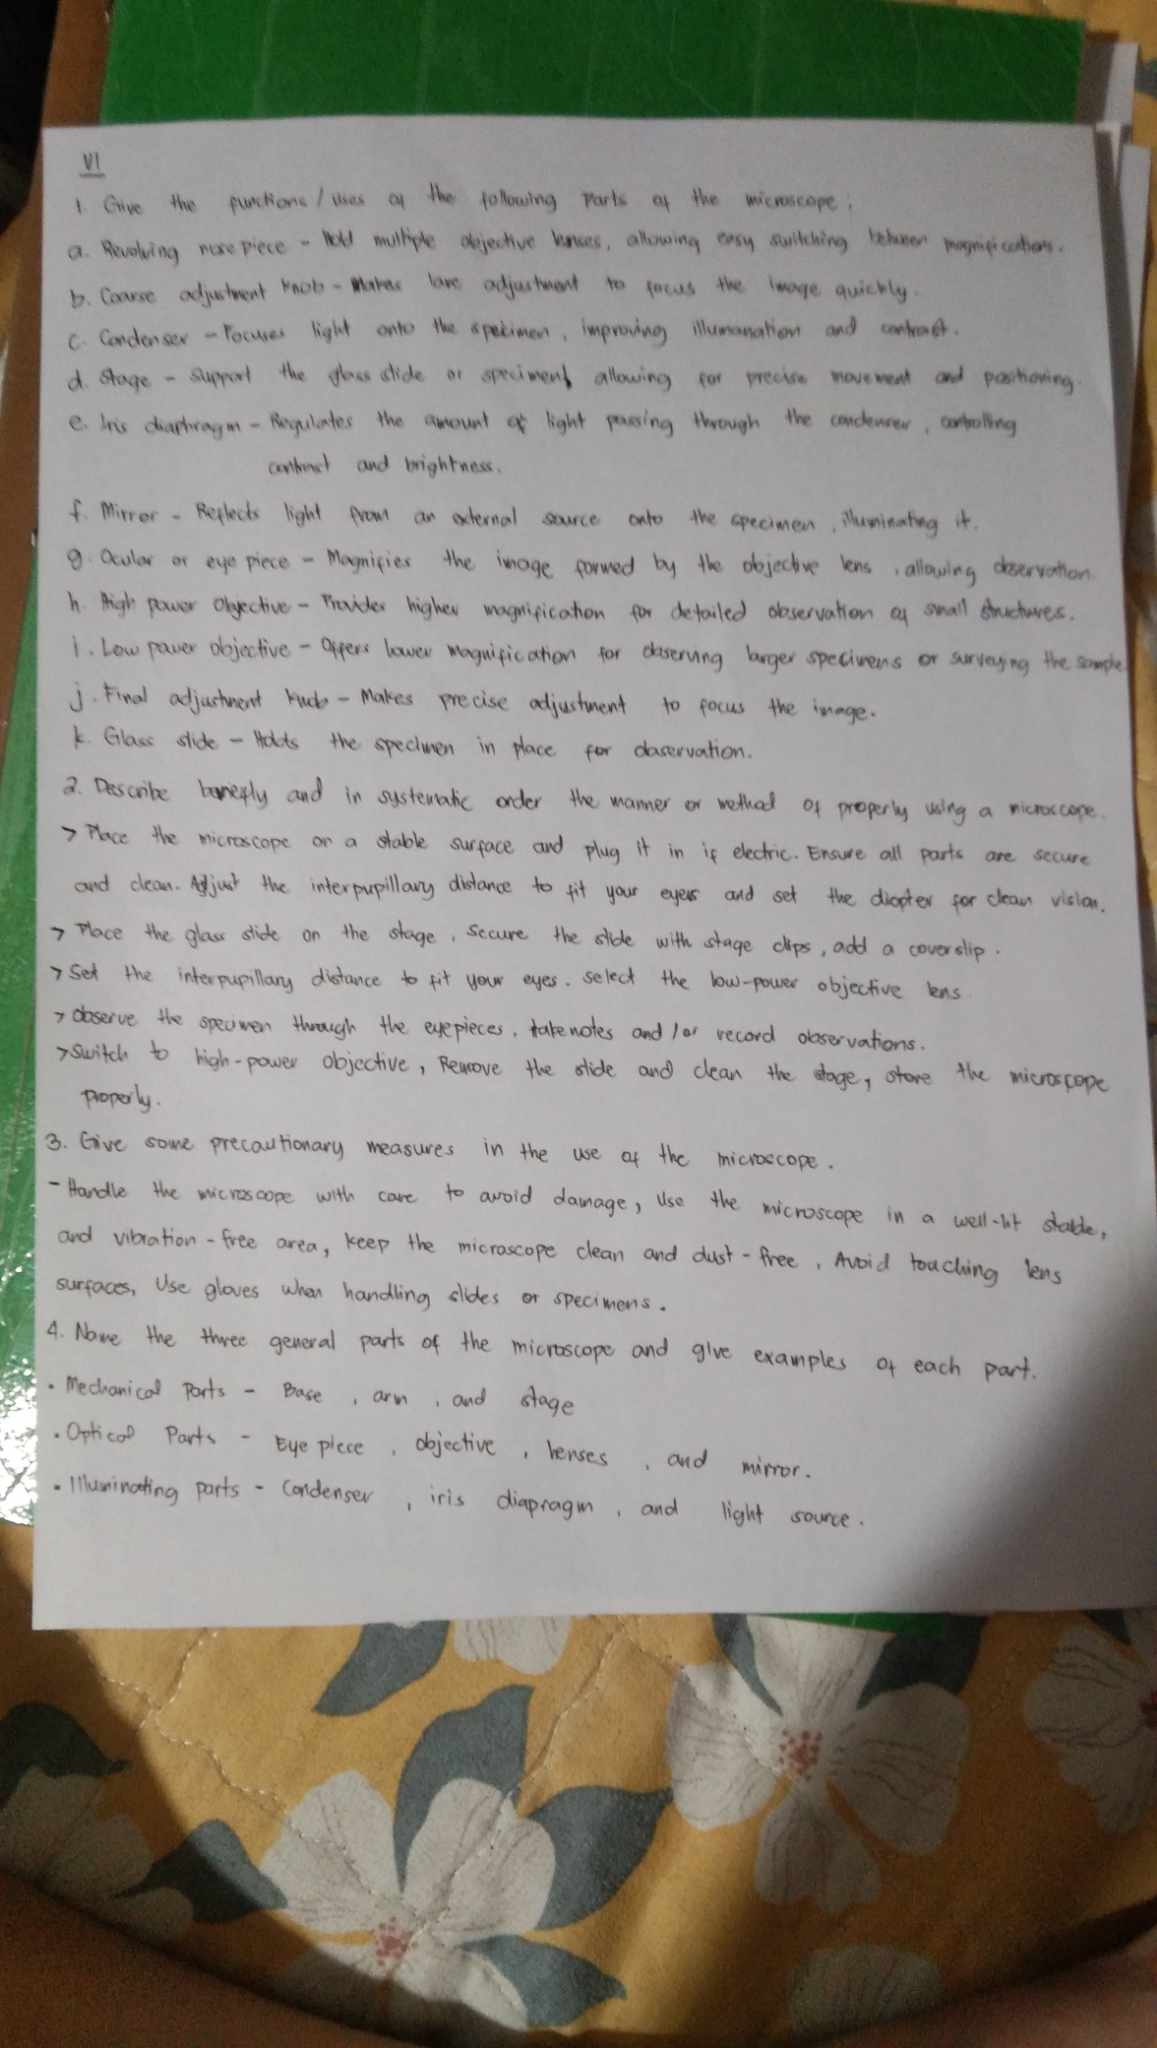 VI
1. Give the functions / uses of the following parts of the microscope:
a. Revolving nose piece - Hold multiple objective lenses, allowing easy switching between magnifications.
b. Coarse adjustment knob - Makes adjustment to focus the image quickly.
c. Condenser - Focuses light onto the specimen, improving illumanation and contrast.
d. Stage - Support the glass slide or specimen, allowing for precise movement and positioning.
e. Iris diaphragm - Regulates the amount of light passing through the condenser, controlling
contrast and brightness.
f. Mirror - Reflects light from an external source onto the specimen, illuminating it.
g. Ocular or eye piece - Magnifies the image formed by the objective lens, allowing observation.
h. High power Objective - Provides higher magnification for detailed observation of small structures.
i. Low power objective - Offers lower magnification for observing larger specimens or surveying the sample.
j. Final adjustment - Makes precise adjustment to focus the image.
k. Glass slide - Holds the specimen in place for observation.
2. Describe and in systematic order the manner or method of properly using a microscope.
> Place the microscope on a stable surface and plug it in if electric. Ensure all parts are secure
and clean. Adjust the interpupillary distance to fit your eyes and set the diopter for clean vision.
> Place the glass slide on the stage, secure the slide with stage clips, add a coverslip.
> Set the interpupillary distance to fit your eyes. select the low-power objective lens.
> Observe the specimen through the eyepieces, take notes and / or record observations.
> Switch to high-power objective, Remove the slide and clean the stage, store the microscope
properly.
3. Give some precautionary measures in the use of the microscope.
- Handle the microscope with care to avoid damage, Use the microscope in a well-lit stable,
and vibration-free area, keep the microscope clean and dust-free, Avoid touching lens
surfaces, Use gloves when handling slides or specimens.
4. Name the three general parts of the microscope and give examples of each part.
• Mechanical Parts - Base, arm, and stage
• Optical Parts - Eye piece, objective, lenses, and mirror.
• Illuminating parts - Condenser, iris diapragm, and light source.